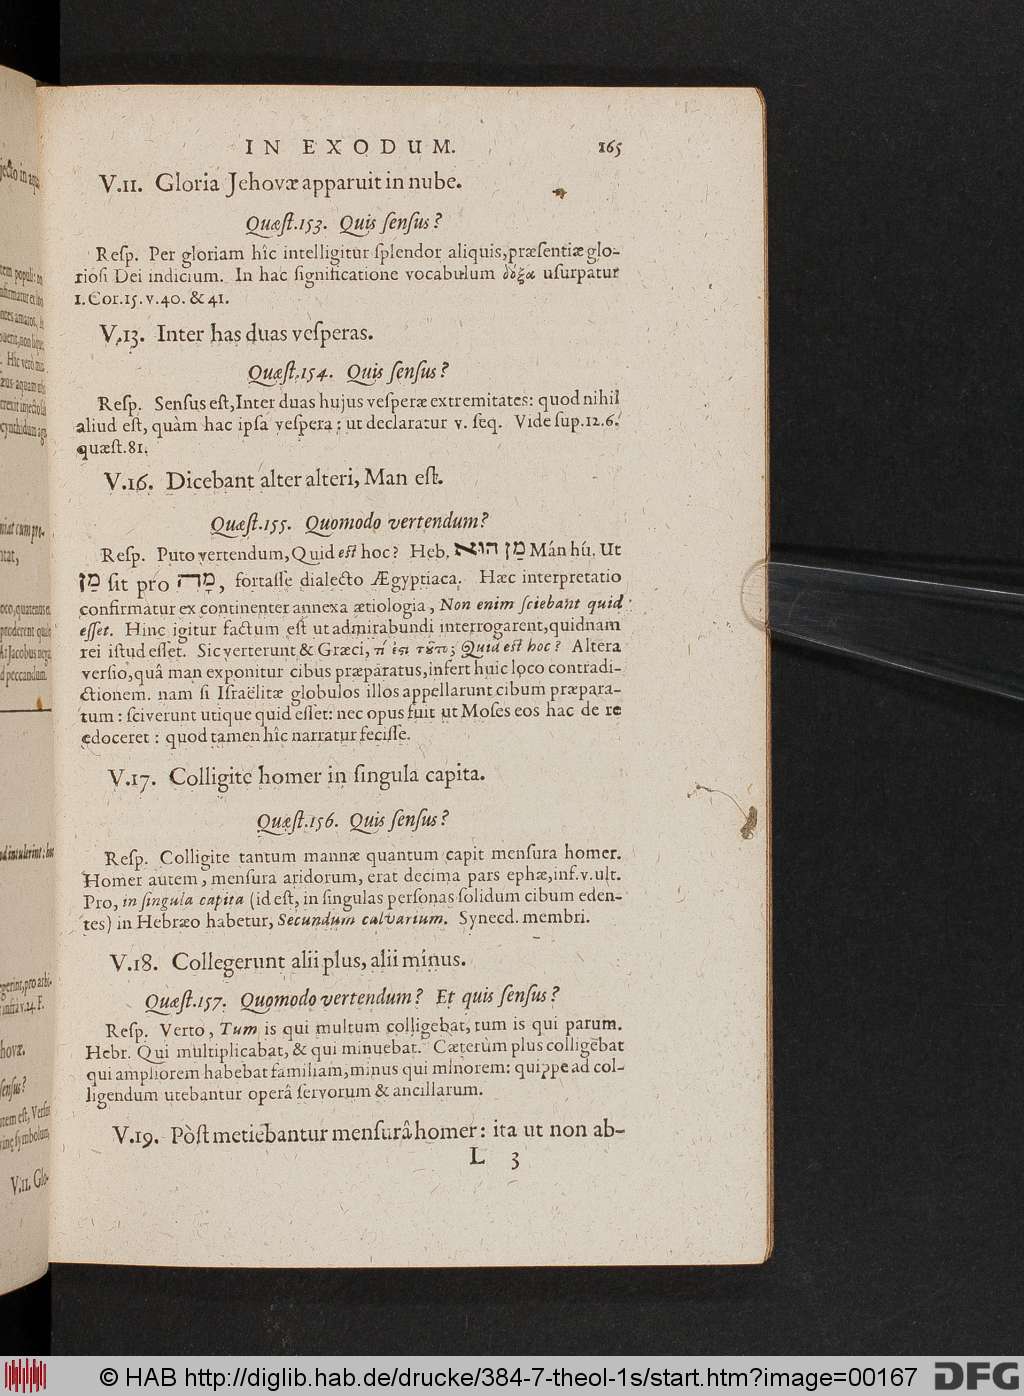 IN EXODUM. 165
V.11. Gloria Jehovæ apparuit in nube.
Quæſt.153. Quis ſenſus?
Reſp. Per gloriam hîc intelligitur ſplendor aliquis, præſentiæ glo-
rioſi Dei indicium. In hac ſignificatione vocabulum δόξα uſurpatur
1. Cor. 15. v. 40. & 41.
V.13. Inter has duas veſperas.
Quæſt.154. Quis ſenſus?
Reſp. Senſus eſt, Inter duas hujus veſperæ extremitates: quod nihil
aliud eſt, quàm hac ipſa veſpera: ut declaratur v. ſeq. Vide ſup. 12.6.
quæſt. 81.
V.16. Dicebant alter alteri, Man eſt.
Quæſt.155. Quomodo vertendum?
Reſp. Puto vertendum, Quid est hoc? Heb. מָן הוּא Mán hú. Ut
מָן ſit pro מָה, fortaſſe dialecto Ægyptiaca. Hæc interpretatio
confirmatur ex continenter annexa ætiologia, Non enim ſciebant quid
eſſet. Hinc igitur factum eſt ut admirabundi interrogarent, quidnam
rei iſtud eſſet. Sic verterunt & Græci, τί ἐςι τȣ̃το; Quid est hoc? Altera
verſio, quâ man exponitur cibus præparatus, infert huic loco contradi-
ctionem. nam ſi Iſraëlitæ globulos illos appellarunt cibum præpara-
tum: ſciverunt utique quid eſſet: nec opus fuit ut Moſes eos hac de re
edoceret: quod tamen hîc narratur feciſſe.
V.17. Colligite homer in ſingula capita.
Quæſt.156. Quis ſenſus?
Reſp. Colligite tantum mannæ quantum capit menſura homer.
Homer autem, menſura aridorum, erat decima pars ephæ, inf. v. ult.
Pro, in ſingula capita (id eſt, in ſingulas perſonas ſolidum cibum eden-
tes) in Hebræo habetur, Secundum calvarium. Synecd. membri.
V.18. Collegerunt alii plus, alii mínus.
Quæſt.157. Quomodo vertendum? Et quis ſenſus?
Reſp. Verto, Tum is qui multum colligebat, tum is qui parum.
Hebr. Qui multiplicabat, & qui minuebat. Cæterùm plus colligebat
qui ampliorem habebat familiam, minus qui minorem: quippe ad col-
ligendum utebantur operâ ſervorum & ancillarum.
V.19. Pòſt metiebantur menſurâ homer: ita ut non ab-
L 3
© HAB http://diglib.hab.de/drucke/384-7-theol-1s/start.htm?image=00167
DFG